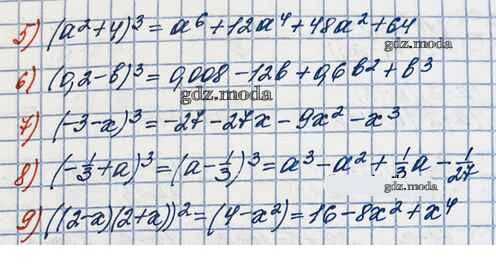 5) (a²+4)³ = a⁶+12a⁴+48a²+64
gdz.moda
6) (0,2-b)³ = 0,008-12b+0,6b²+b³
gdz.moda
7) (-3-x)³ = -27-27x-9x²-x³
8) (-1/3+a)³ = (a-1/3)³ = a³-a²+1/3a-1/27
gdz.moda
9) ((2-x)(2+x))² = (4-x²) = 16-8x²+x⁴
gdz.moda